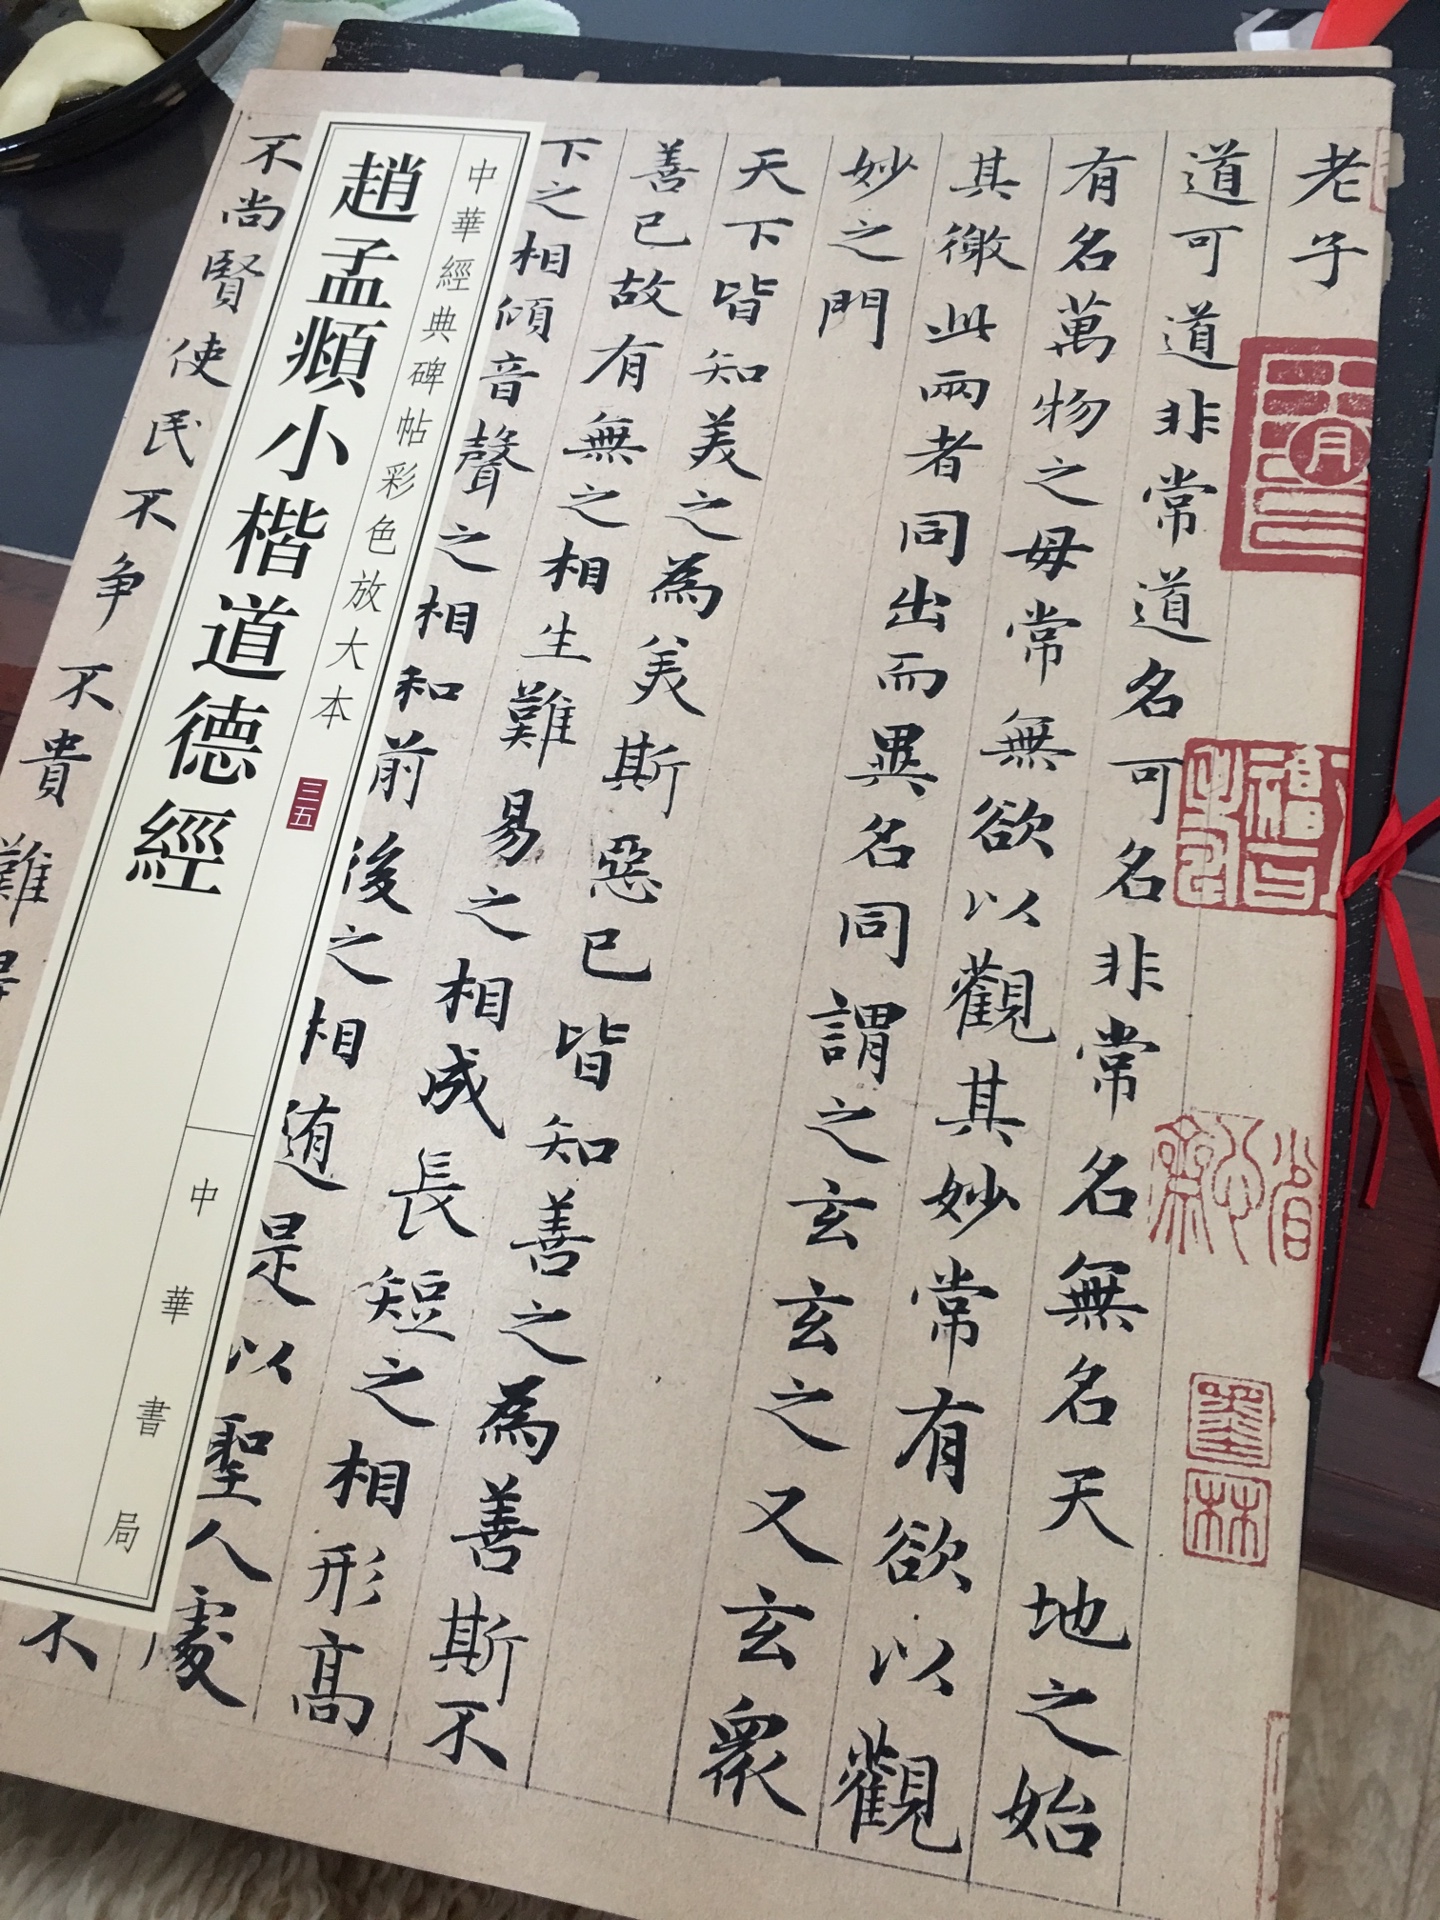 老子
道可道非常道名可名非常名無名天地之始
有名萬物之母常無欲以觀其妙常有欲以觀
其徼此兩者同出而異名同謂之玄玄之又玄衆
妙之門
天下皆知美之為美斯惡已皆知善之為善斯不
善已故有無之相生難易之相成長短之相形高
下之相傾音聲之相和前後之相随是以聖人處
不
不尚賢使民不争不貴難
中華經典碑帖彩色放大本
三五
中華書局
趙孟頫小楷道德經
墨林